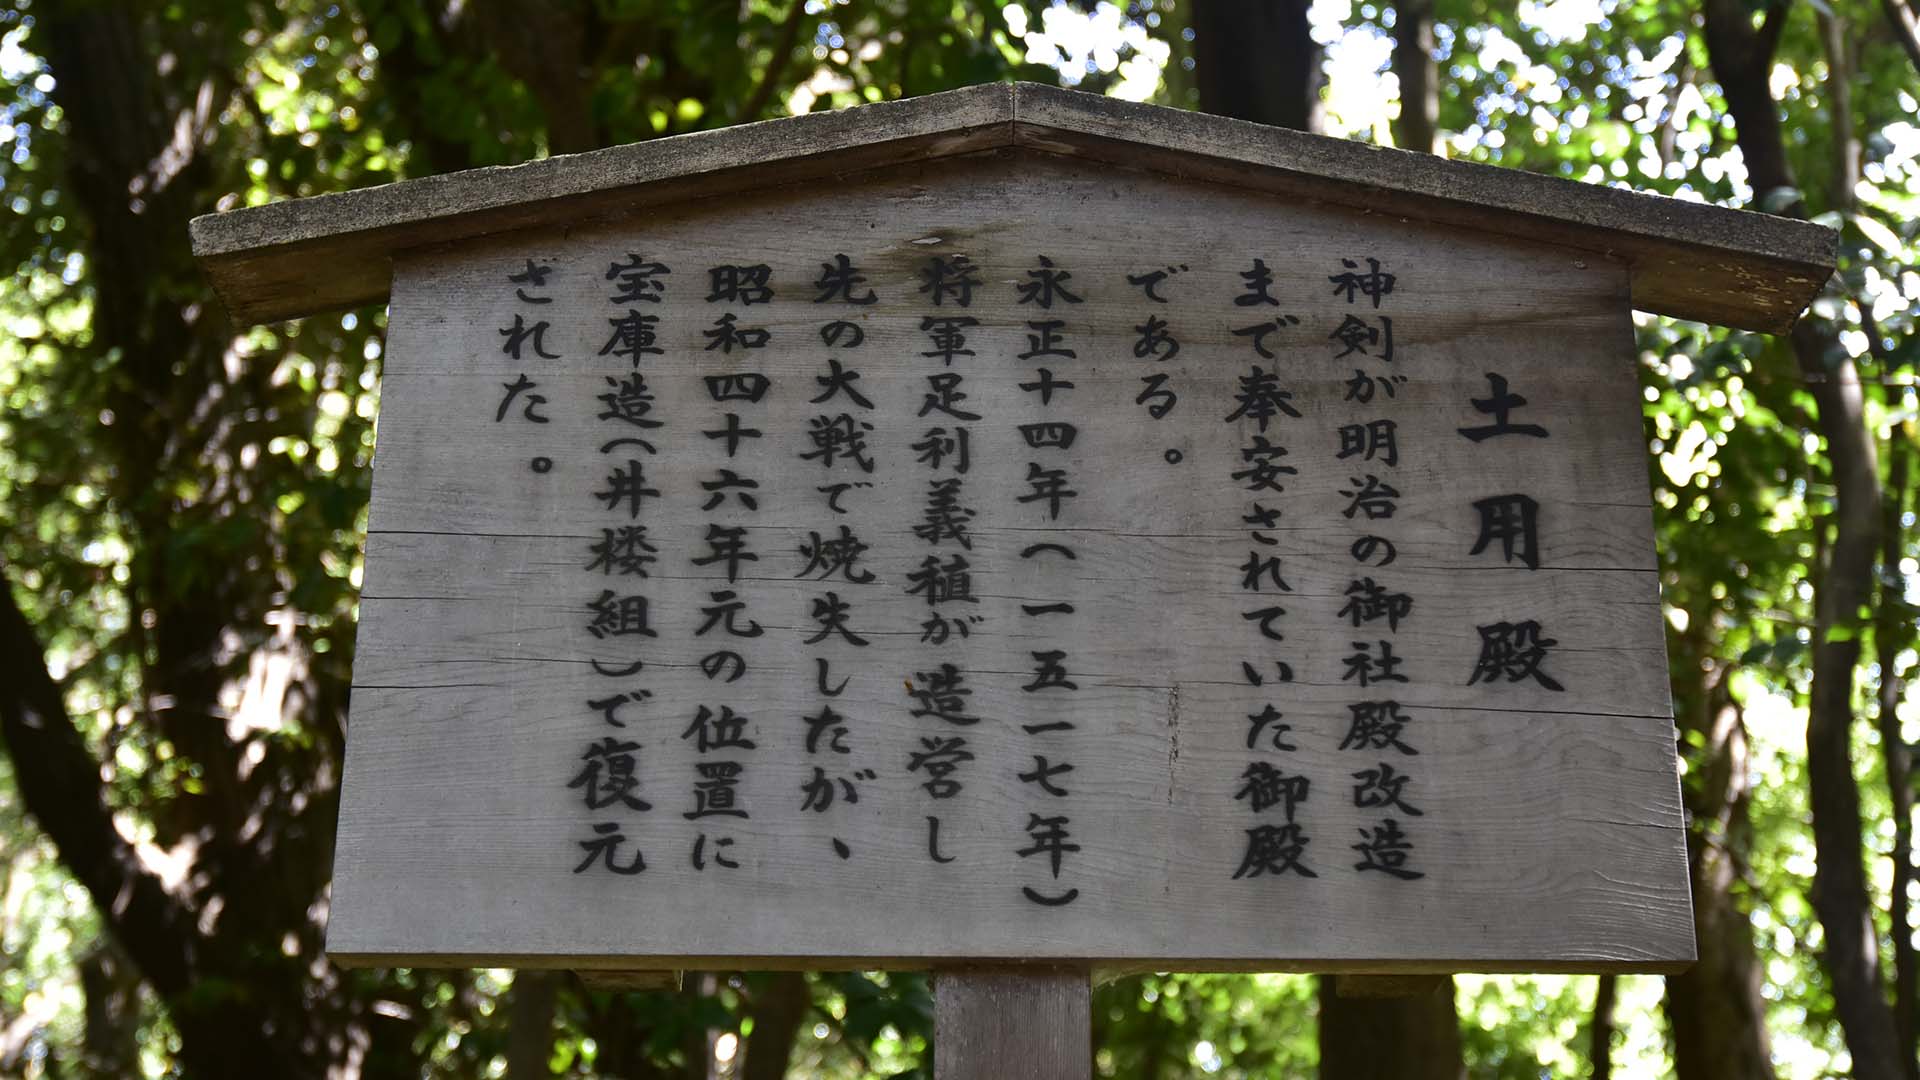 土用殿
神剣が明治の御社殿改造
まで奉安されていた御殿
である。
永正十四年(一五一七年)
将軍足利義稙が造営し
先の大戦で焼失したが、
昭和四十六年元の位置に
宝庫造(井楼組)で復元
された。